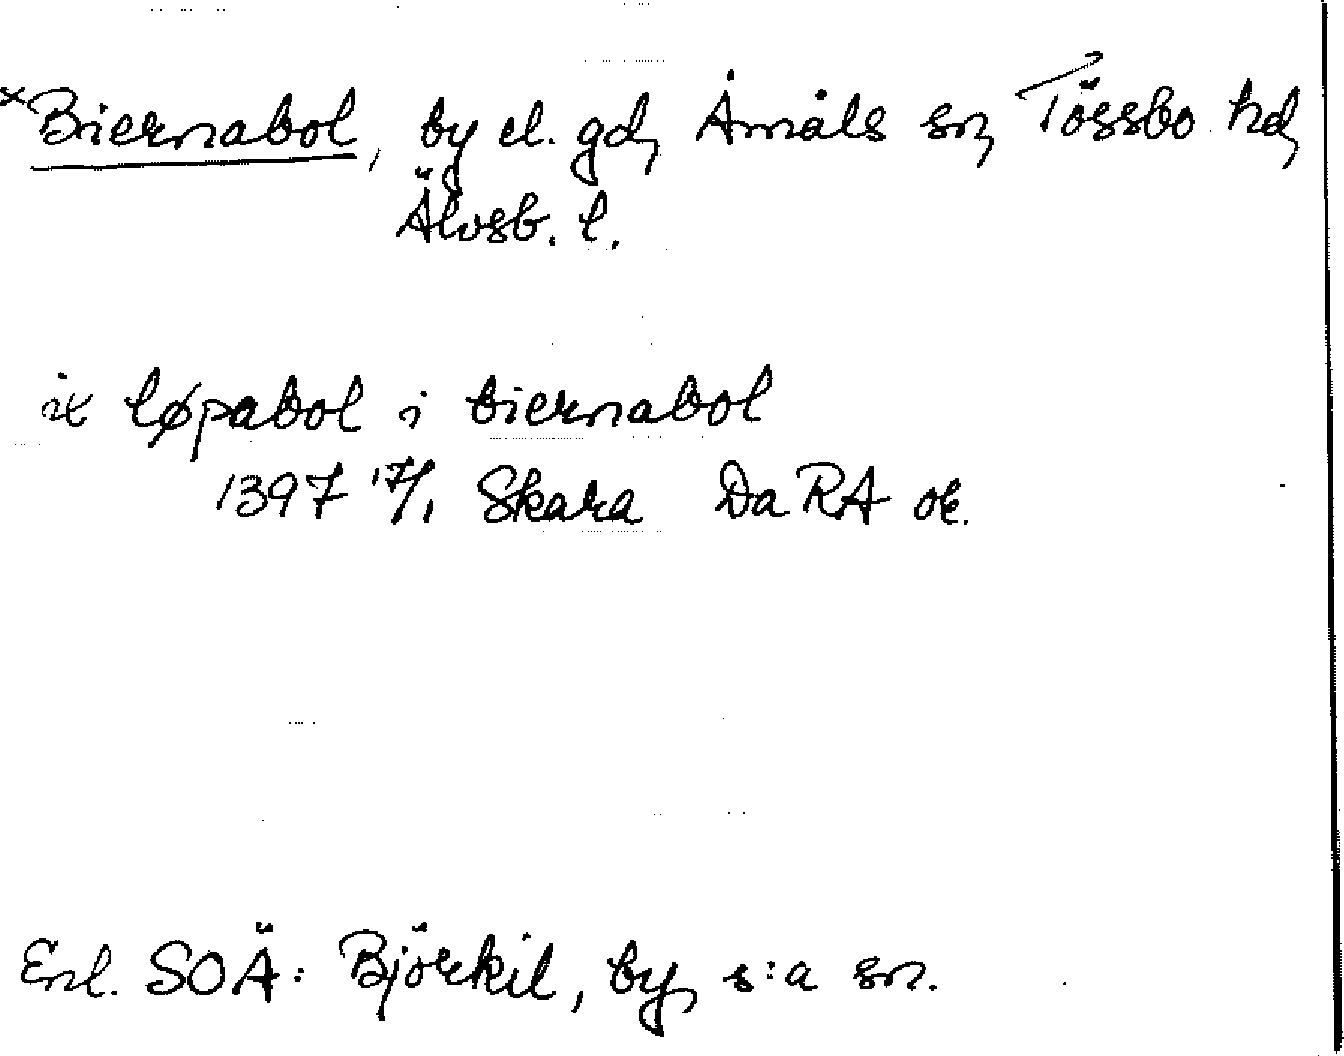 *Biernabol, by el. gd, Åmåls sn, Tössbo hd,
Älvsb. l.
it løpabol i biernabol
1397 17/1 Skara DaRA or.
Enl. SOÄ: Björkil, by, s:a sn.